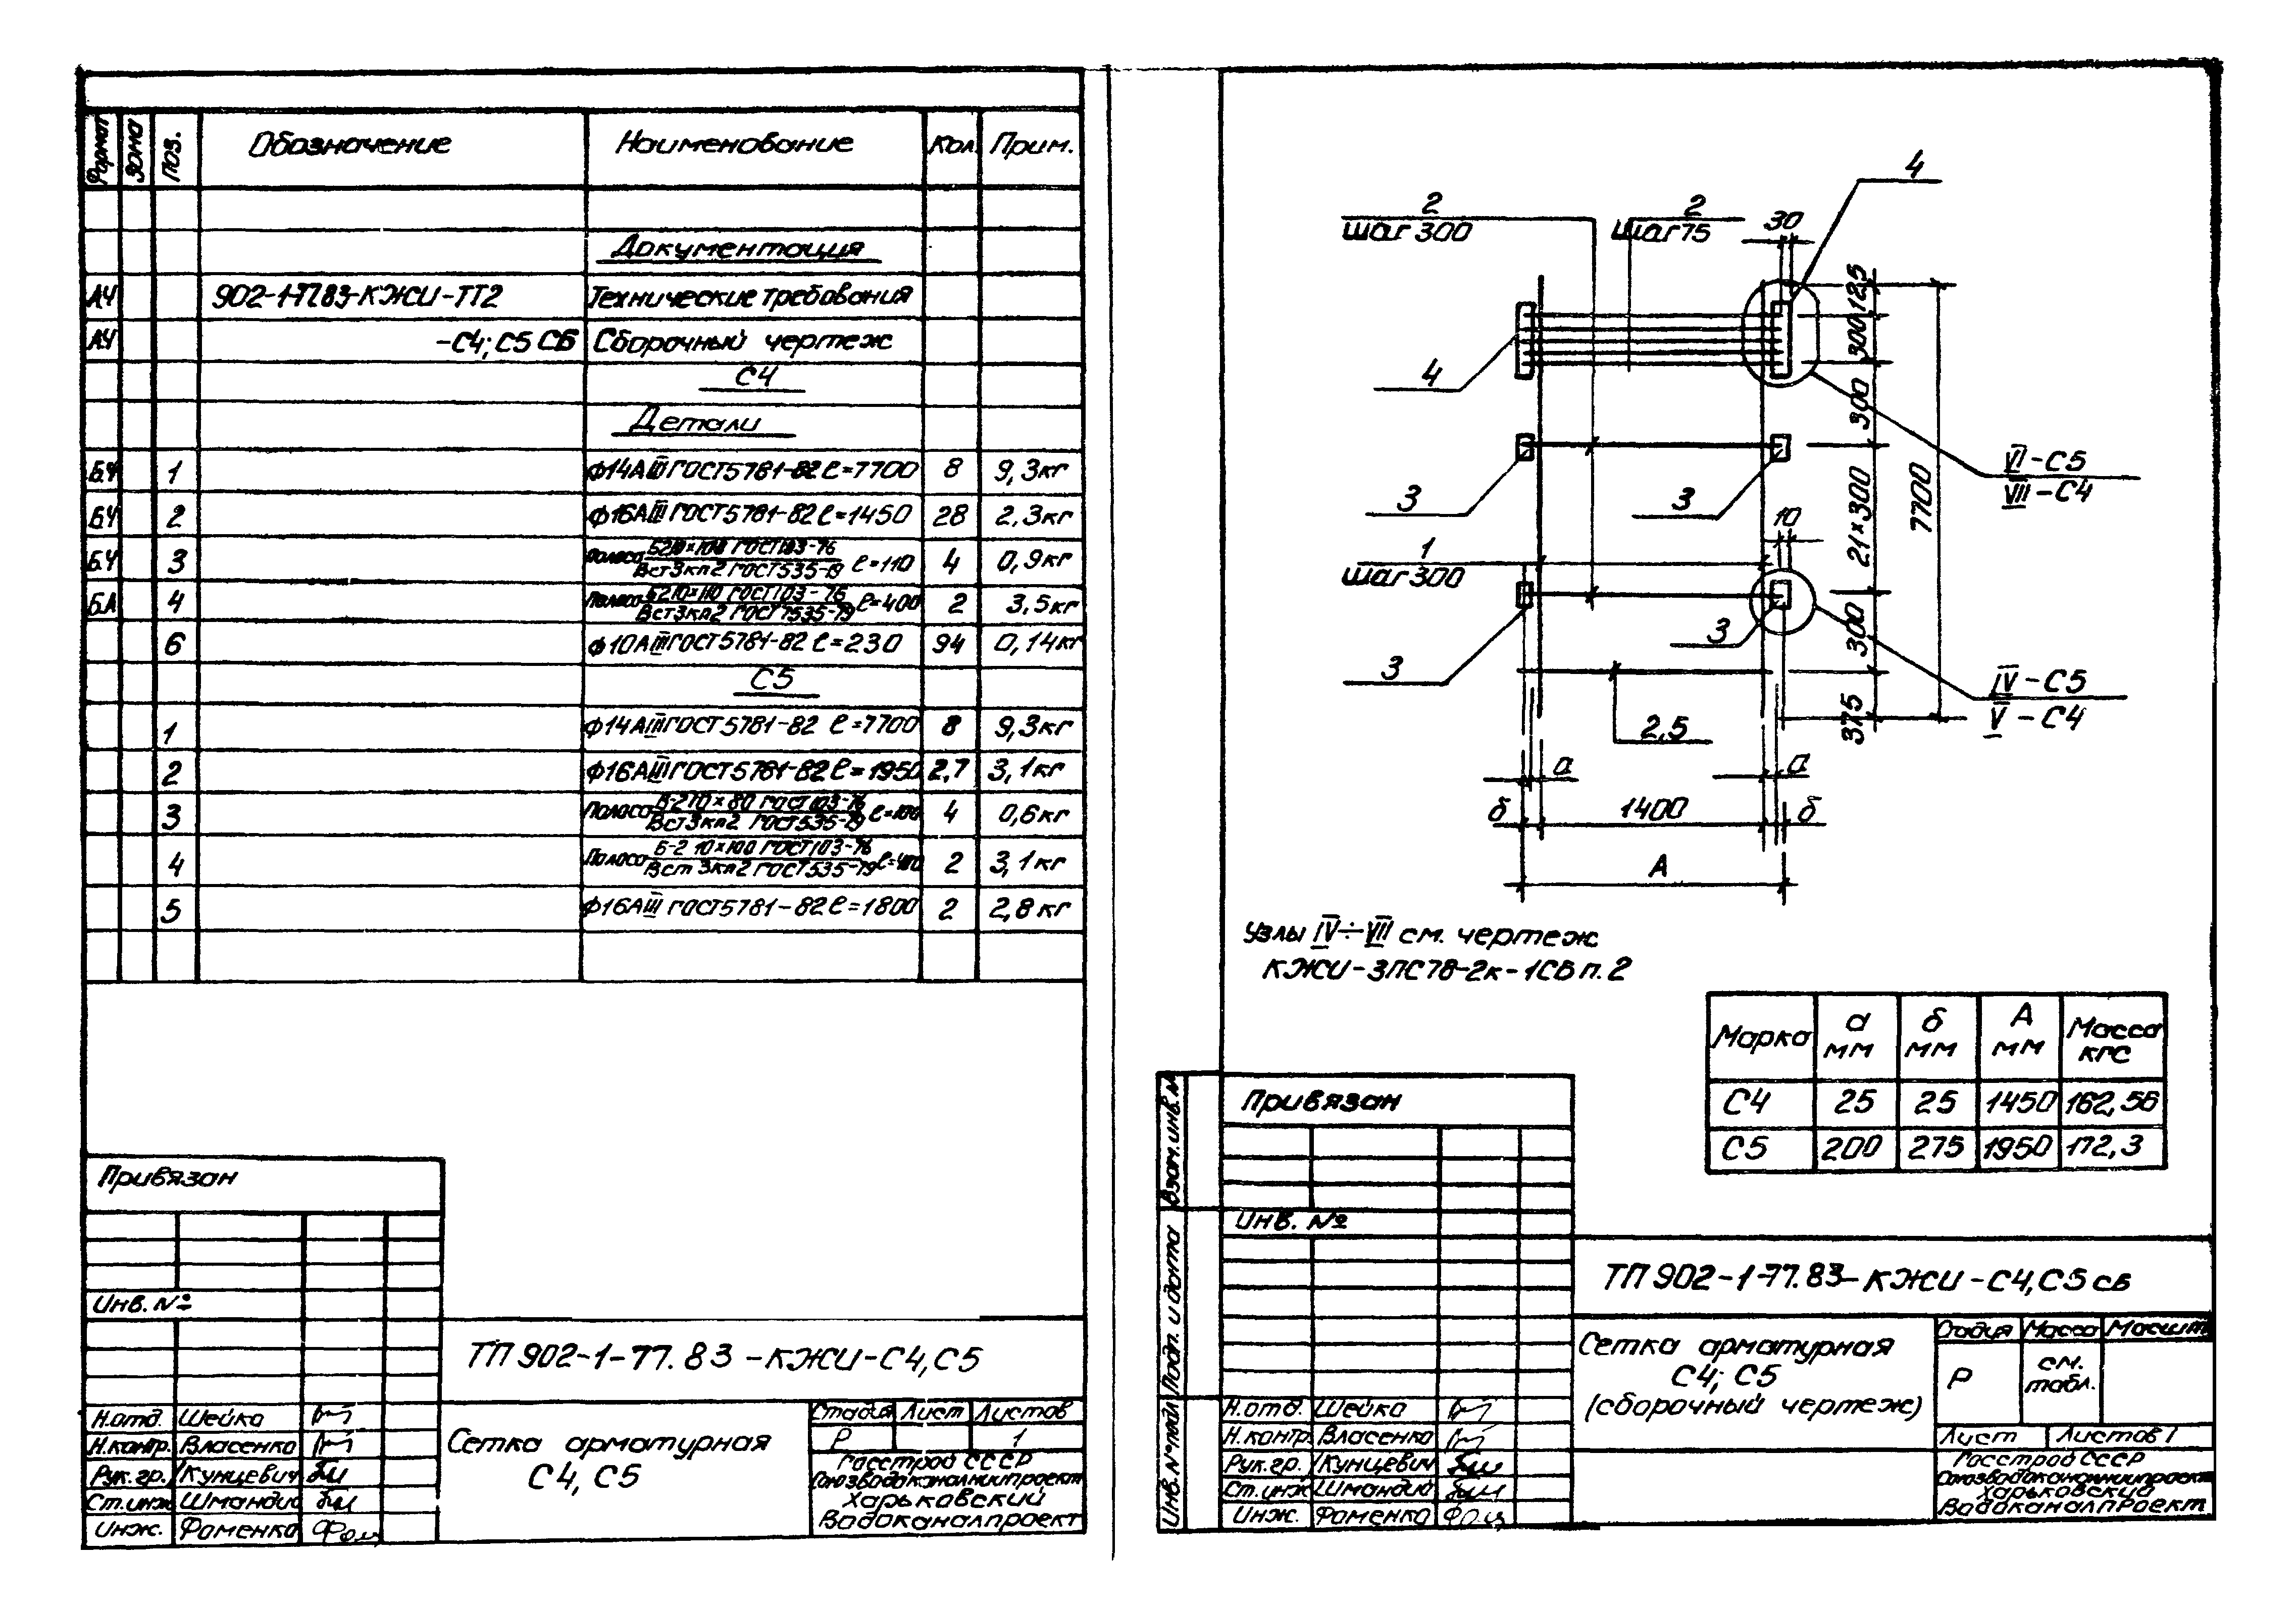 Формат Зона Поз. Обозначение Наименование Кол. Прим.
Документация
А4 902-1-77.83-КЖИ-ТТ2 Технические требования
А4 -С4; С5 СБ Сборочный чертеж
С4
Детали
Б.Ч 1 ф14АIII ГОСТ5781-82 ℓ=7700 8 9,3кг
Б.Ч 2 ф16АIII ГОСТ5781-82 ℓ=1450 28 2,3кг
Б.Ч 3 Полоса Б210×100 ГОСТ103-76 ℓ=110 4 0,9кг
Вст3кп2 ГОСТ535-79
Б.А 4 Полоса Б210×110 ГОСТ103-76 ℓ=400 2 3,5кг
Вст3кп2 ГОСТ535-79
6 ф10АIII ГОСТ5781-82 ℓ=230 94 0,14кг
С5
1 ф14АIII ГОСТ5781-82 ℓ=7700 8 9,3кг
2 ф16АIII ГОСТ5781-82 ℓ=1950 2,7 3,1кг
3 Полоса Б-210×80 ГОСТ103-76 ℓ=100 4 0,6кг
Вст3кп2 ГОСТ535-79
4 Полоса Б-2 10×100 ГОСТ103-76 ℓ=400 2 3,1кг
Вст 3кп2 ГОСТ535-79
5 ф16АIII ГОСТ5781-82 ℓ=1800 2 2,8кг
Привязан
Инв. №
ТП 902-1-77.83-КЖИ-С4, С5
Н.отд. Шейко
Н.контр. Власенко
Рук.гр. Кунцевич
Ст.инж Шмандий
Инж. Фоменко
Сетка арматурная
С4, С5
Стадия Лист Листов
Р 1
Госстрой СССР
Союзводоканалниипроект
Харьковский
Водоканалпроект
4
2
шаг 300
2
шаг 75
30
125
300
4
300
VI-С5
VII-С4
3
3
21×300
7700
10
1
шаг 300
3
3
300
IV-С5
V-С4
2,5
375
а
а
б
1400
б
А
Узлы IV÷VII см. чертеж
КЖИ-3ПС78-2к-1СБ п.2
Марка а мм б мм А мм Масса кгс
С4 25 25 1450 162,56
С5 200 275 1950 172,3
Взам.инв.№
Подп. и дата
Инв.№ подл
Привязан
Инв. №
ТП 902-1-77.83-КЖИ-С4, С5 СБ
Н.отд. Шейко
Н.контр Власенко
Рук.гр. Кунцевич
Ст.инж Шмандий
Инж. Фоменко
Сетка арматурная
С4; С5
(сборочный чертеж)
Стадия Масса Масшт
Р см. табл.
Лист Листов 1
Госстрой СССР
Союзводоканалниипроект
Харьковский
Водоканалпроект